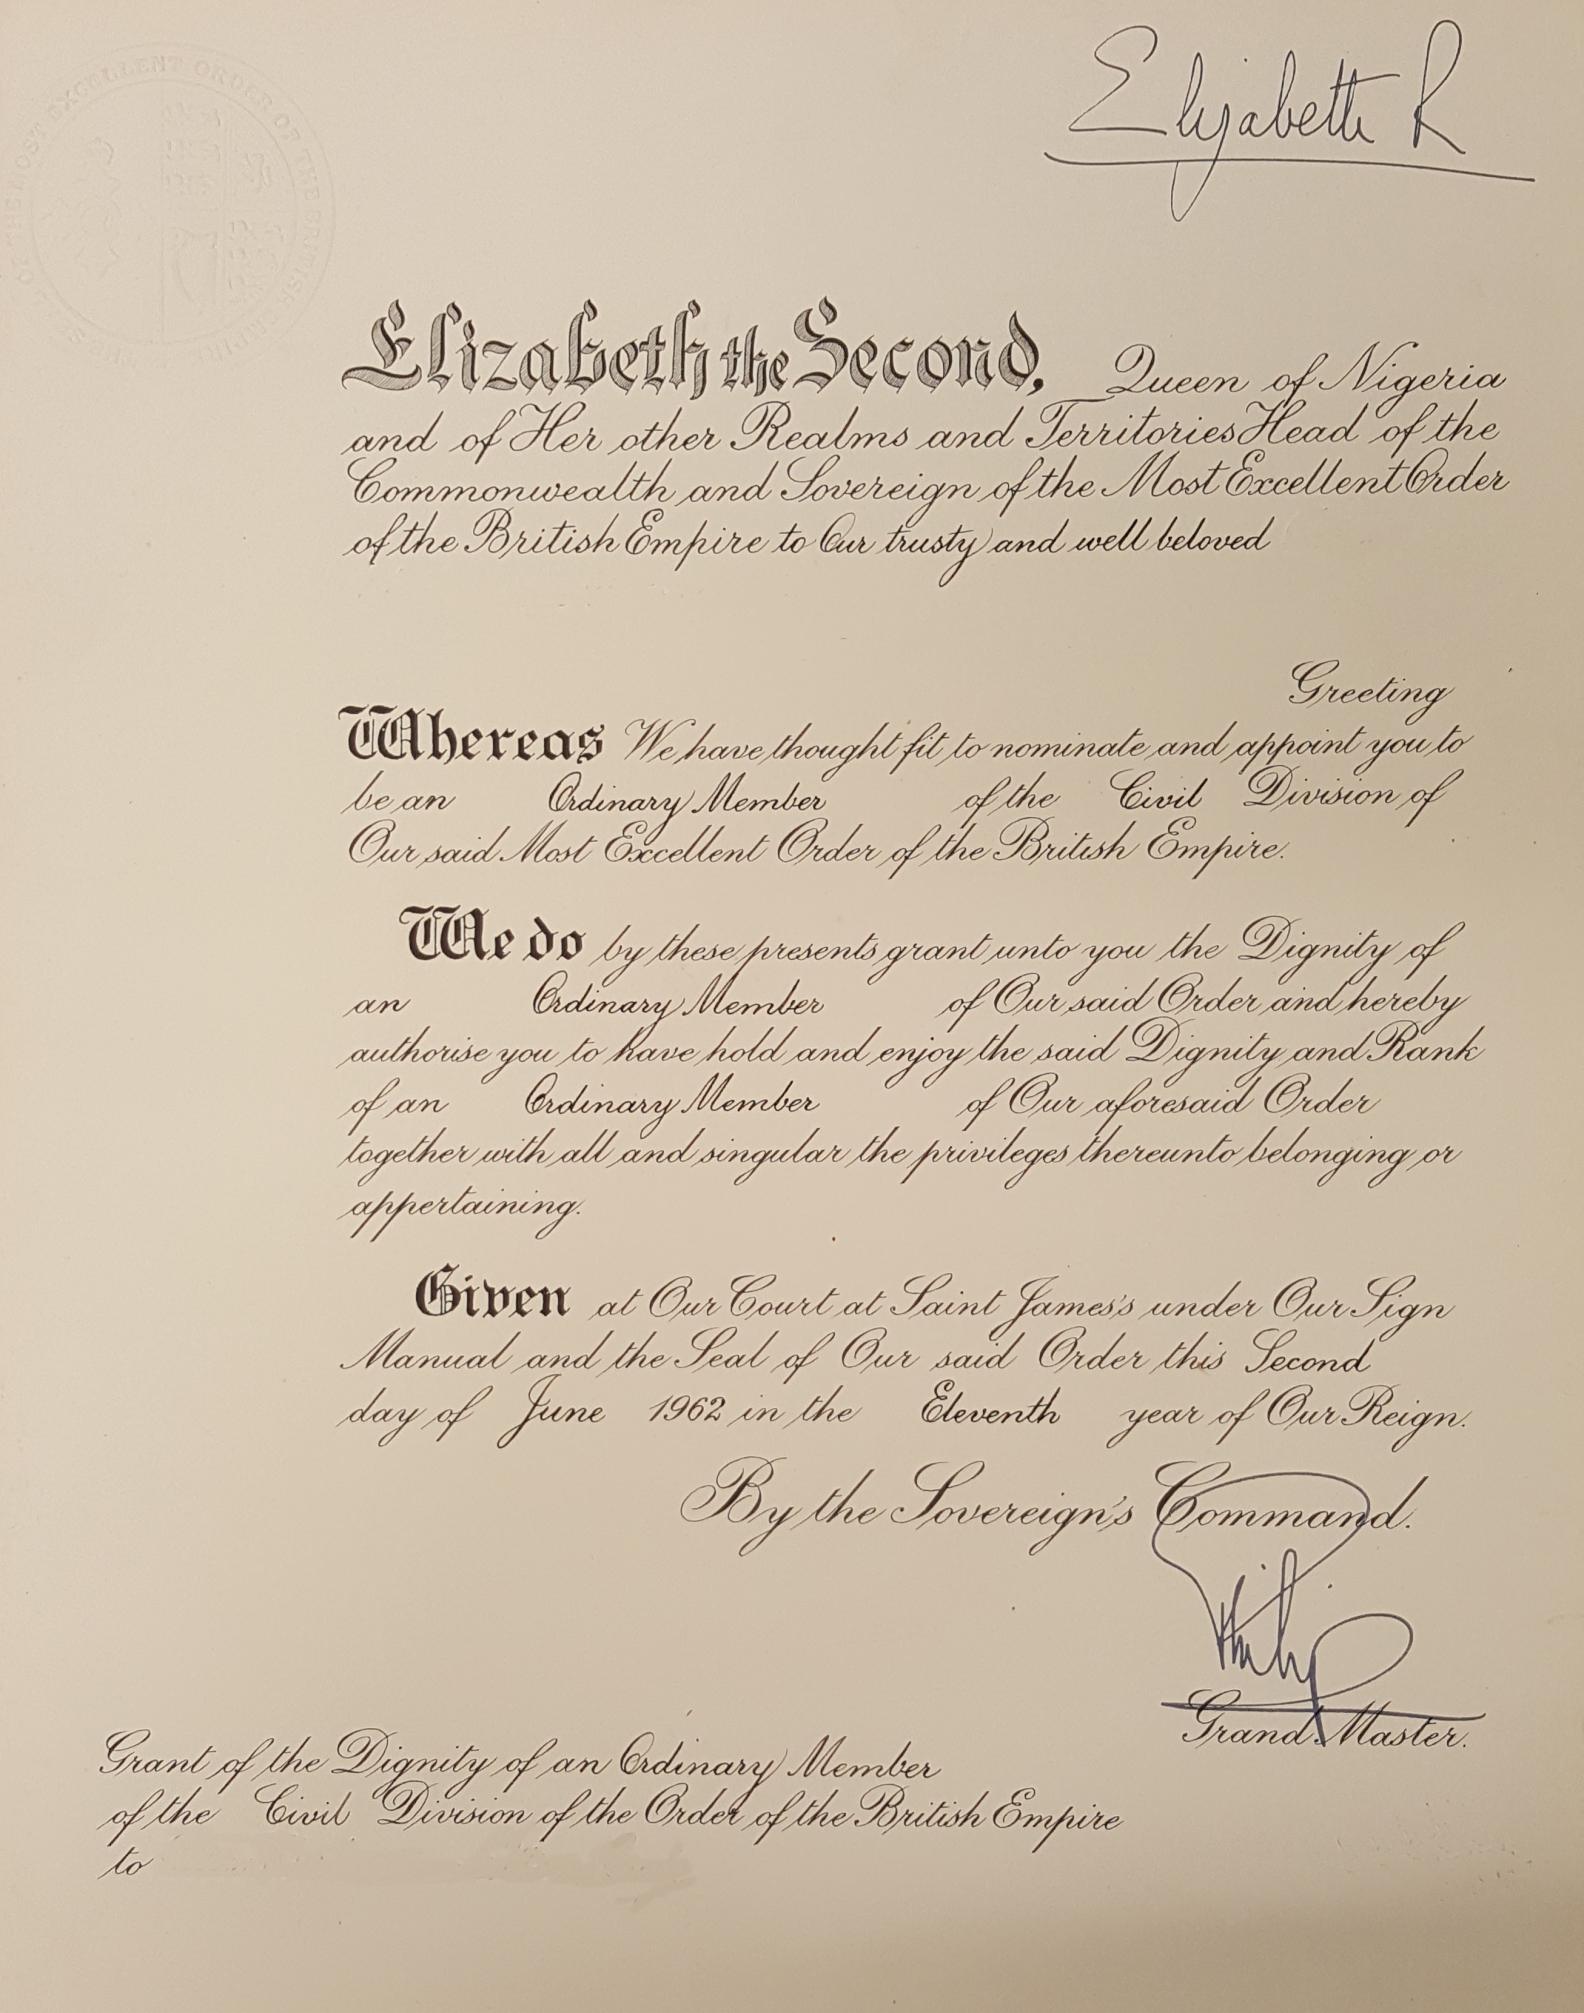 OF THE MOST EXCELLENT ORDER OF THE BRITISH
Elizabeth R
Elizabeth the Second, Queen of Nigeria
and of Her other Realms and Territories Head of the
Commonwealth and Sovereign of the Most Excellent Order
of the British Empire to Our trusty and well beloved
Greeting
Whereas We have thought fit to nominate and appoint you to
be an Ordinary Member of the Civil Division of
Our said Most Excellent Order of the British Empire.
We do by these presents grant unto you the Dignity of
an Ordinary Member of Our said Order and hereby
authorise you to have hold and enjoy the said Dignity and Rank
of an Ordinary Member of Our aforesaid Order
together with all and singular the privileges thereunto belonging or
appertaining.
Given at Our Court at Saint James's under Our Sign
Manual and the Seal of Our said Order this Second
day of June 1962 in the Eleventh year of Our Reign.
By the Sovereign's Command.
Philip
Grand Master.
Grant of the Dignity of an Ordinary Member
of the Civil Division of the Order of the British Empire
to